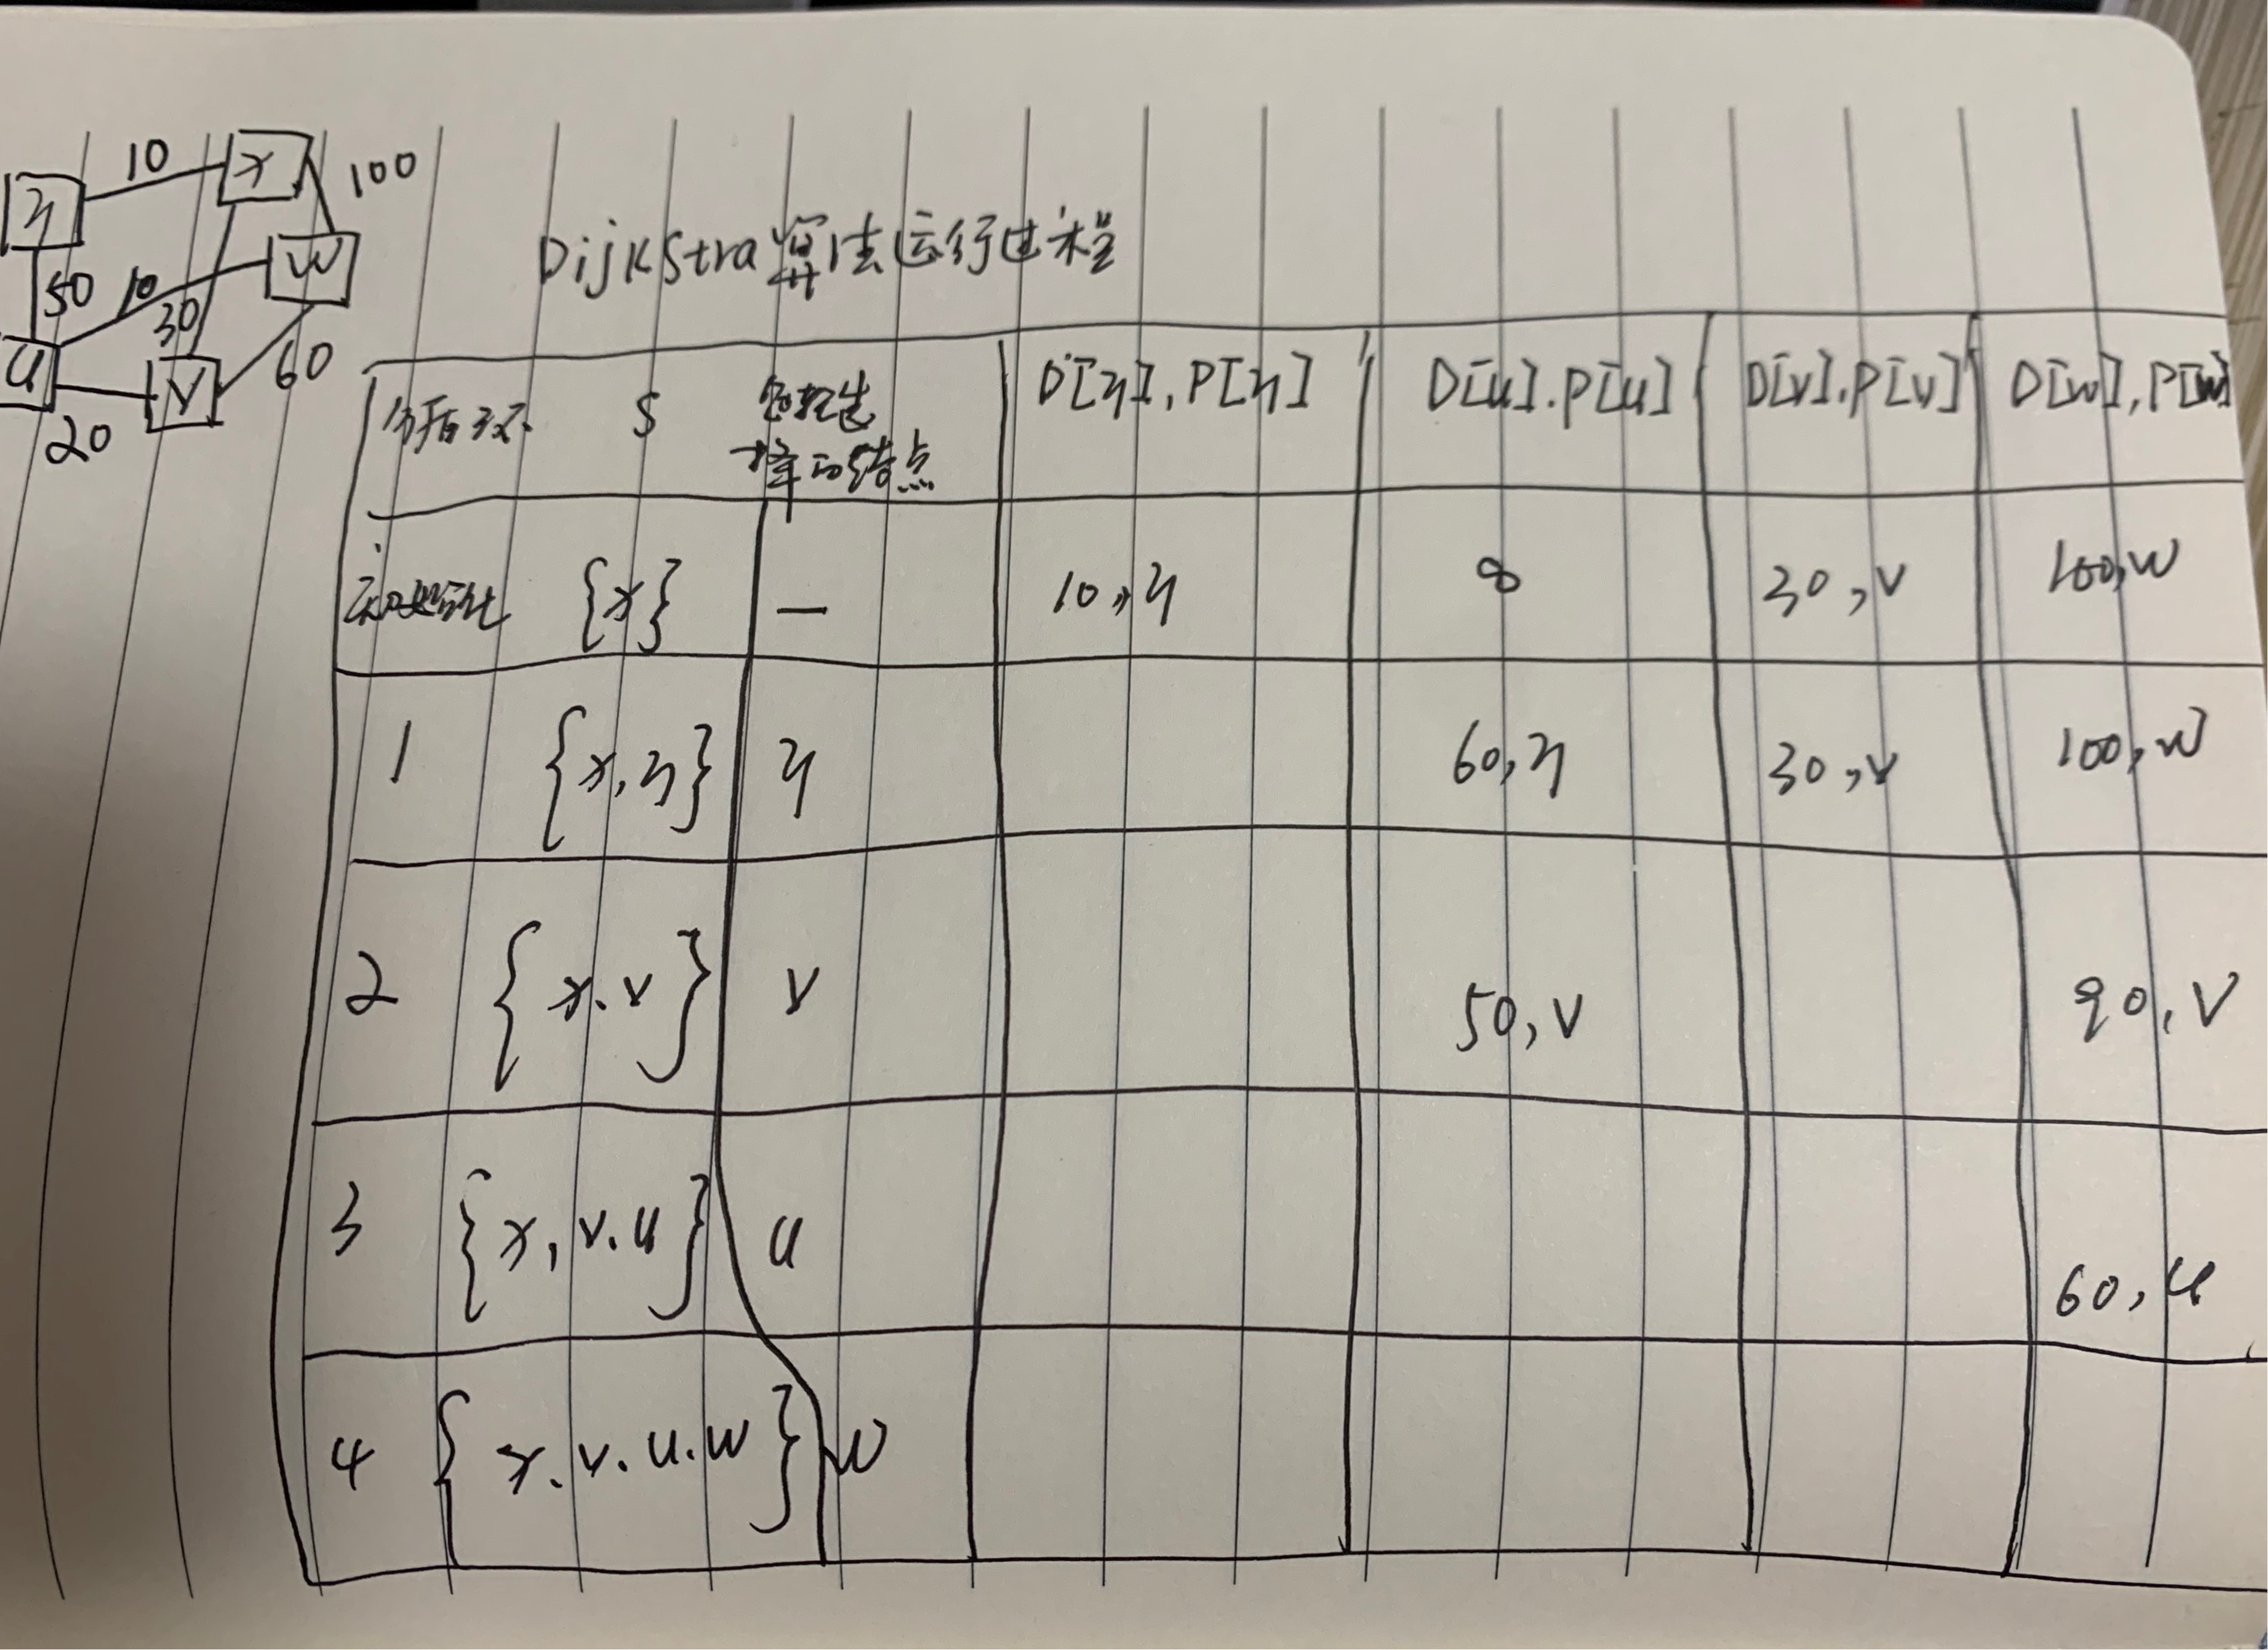 10
y
x
100
50
10
30
w
u
v
60
20
Dijkstra算法运行过程
循环
S
包括选
择的结点
D[y], P[y]
D[u].P[u]
D[v].P[v]
D[w], P[w]
初始化 {x} — 10,y ∞ 30,v 100,w
1 {x,y} y 60,y 30,v 100,w
2 {x.v} v 50,v 90,v
3 {x,v.u} u 60,u
4 {x.v.u.w} w